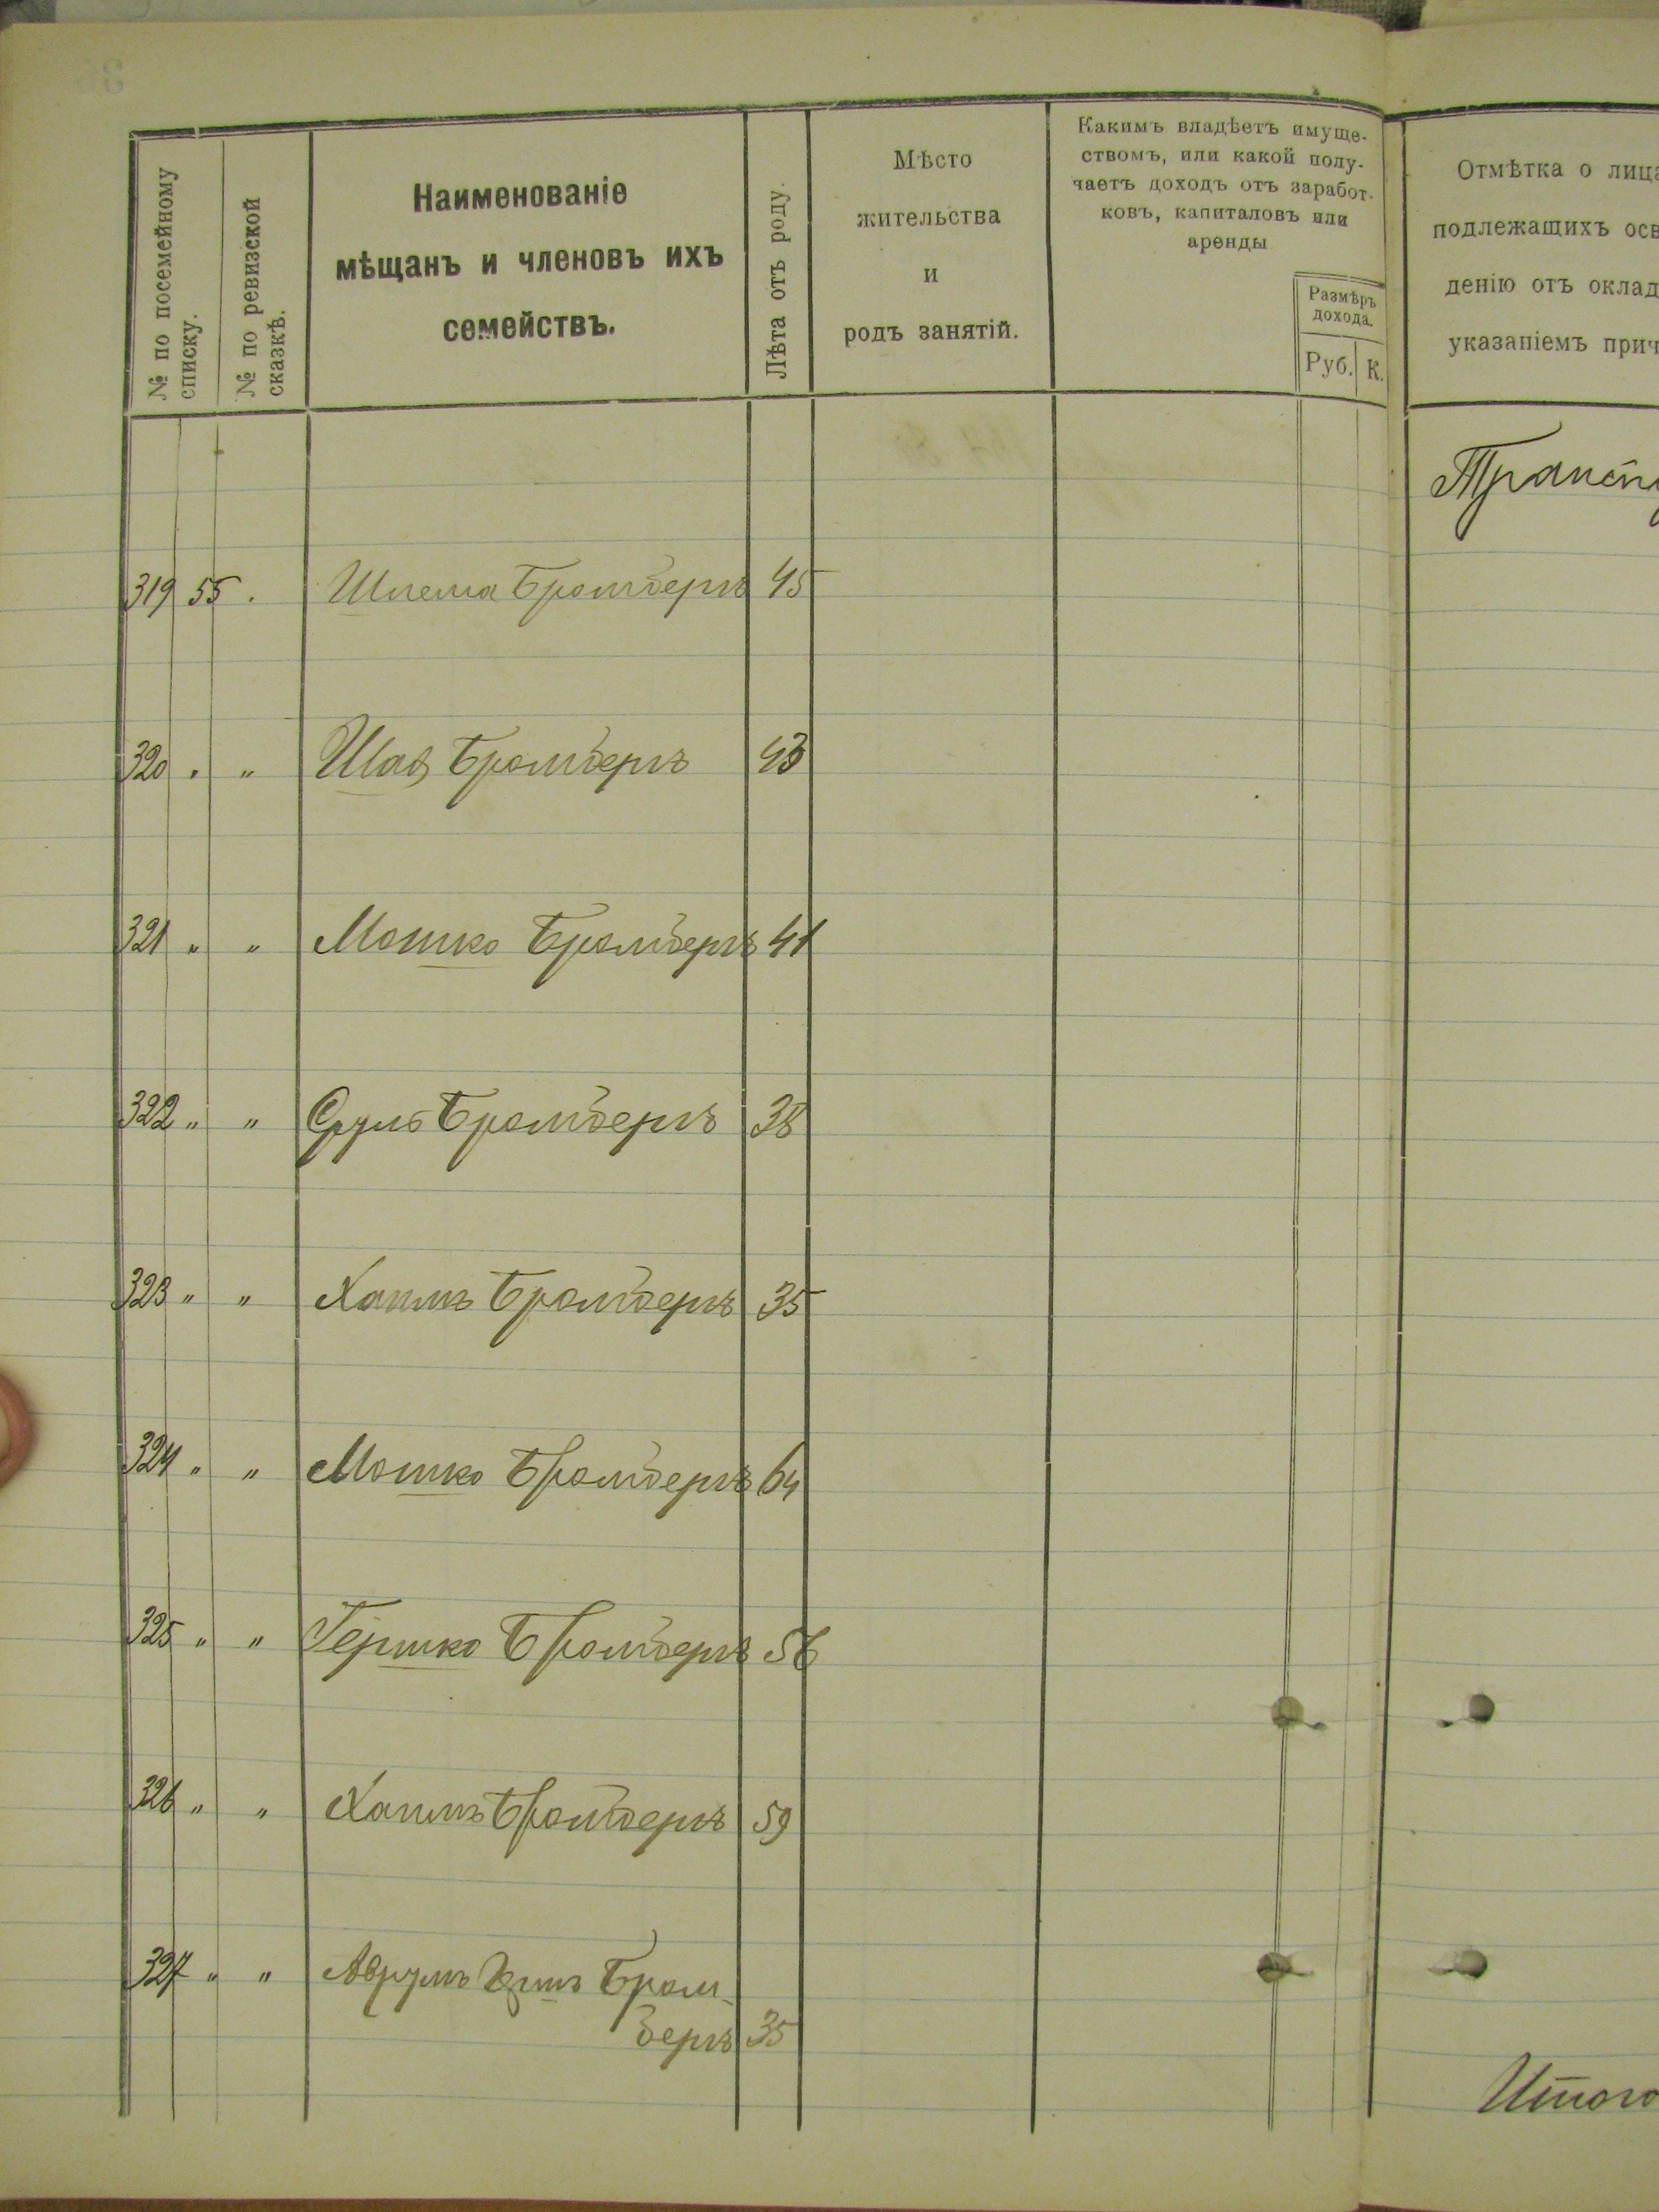 № по посемейному
списку.
№ по ревизской
сказкѣ.
Наименованіе
мѣщанъ и членовъ ихъ
семействъ.
Лѣта отъ роду.
Мѣсто
жительства
и
родъ занятій.
Какимъ владѣетъ имуще-
ствомъ, или какой полу-
чаетъ доходъ отъ заработ-
ковъ, капиталовъ или
аренды
Размѣръ
дохода.
Руб. К.
Отмѣтка о лица
подлежащихъ осв
денію отъ оклад
указаніемъ прич
Трансп
319 55 . Шлема Бромберъ 45
320 . " Шая Бромберъ 43
321 " " Мошко Бромберъ 41
322 " " Сруль Бромберъ 38
323 " " Хаимъ Бромберъ 35
324 " " Мошко Бромберъ 64
325 " " Гершко Бромберъ 56
326 " " Хаимъ Бромберъ 59
327 " " Аврумъ Бром-
беръ 35
Итого